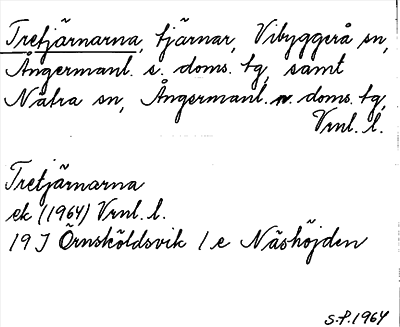 Tretjärnarna, tjärnar, Vibyggerå sn,
Ångermanl. s. doms. tg, samt
Nätra sn, Ångermanl. n. doms. tg,
Vrnl. l.
Tretjärnarna
ek (1964) Vrnl. l.
19 J Örnsköldsvik 1 e Näshöjden
S.P. 1964